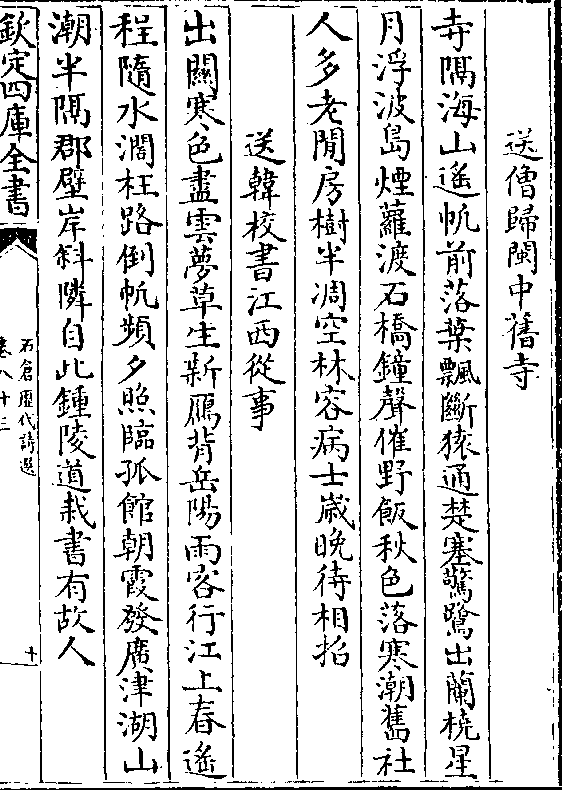 送僧歸閩中舊寺
寺隅海山遥帆前落葉飄斷猿通楚塞驚鷺出蘭橈星
月浮波島煙蘿渡石橋鐘聲催野飯秋色落寒潮舊社
人多老閒房樹半凋空林容病士歲晚待相招
送韓校書江西從事
出關寒色盡雲夢草生新鴈背岳陽雨客行江上春遥
程隨水濶枉路倒帆頻夕照臨孤館朝霞發廣津湖山
潮半隅郡壁岸斜隣自此鍾陵道裁書有故人
欽定四庫全書
石倉歷代詩選
卷八十三
十